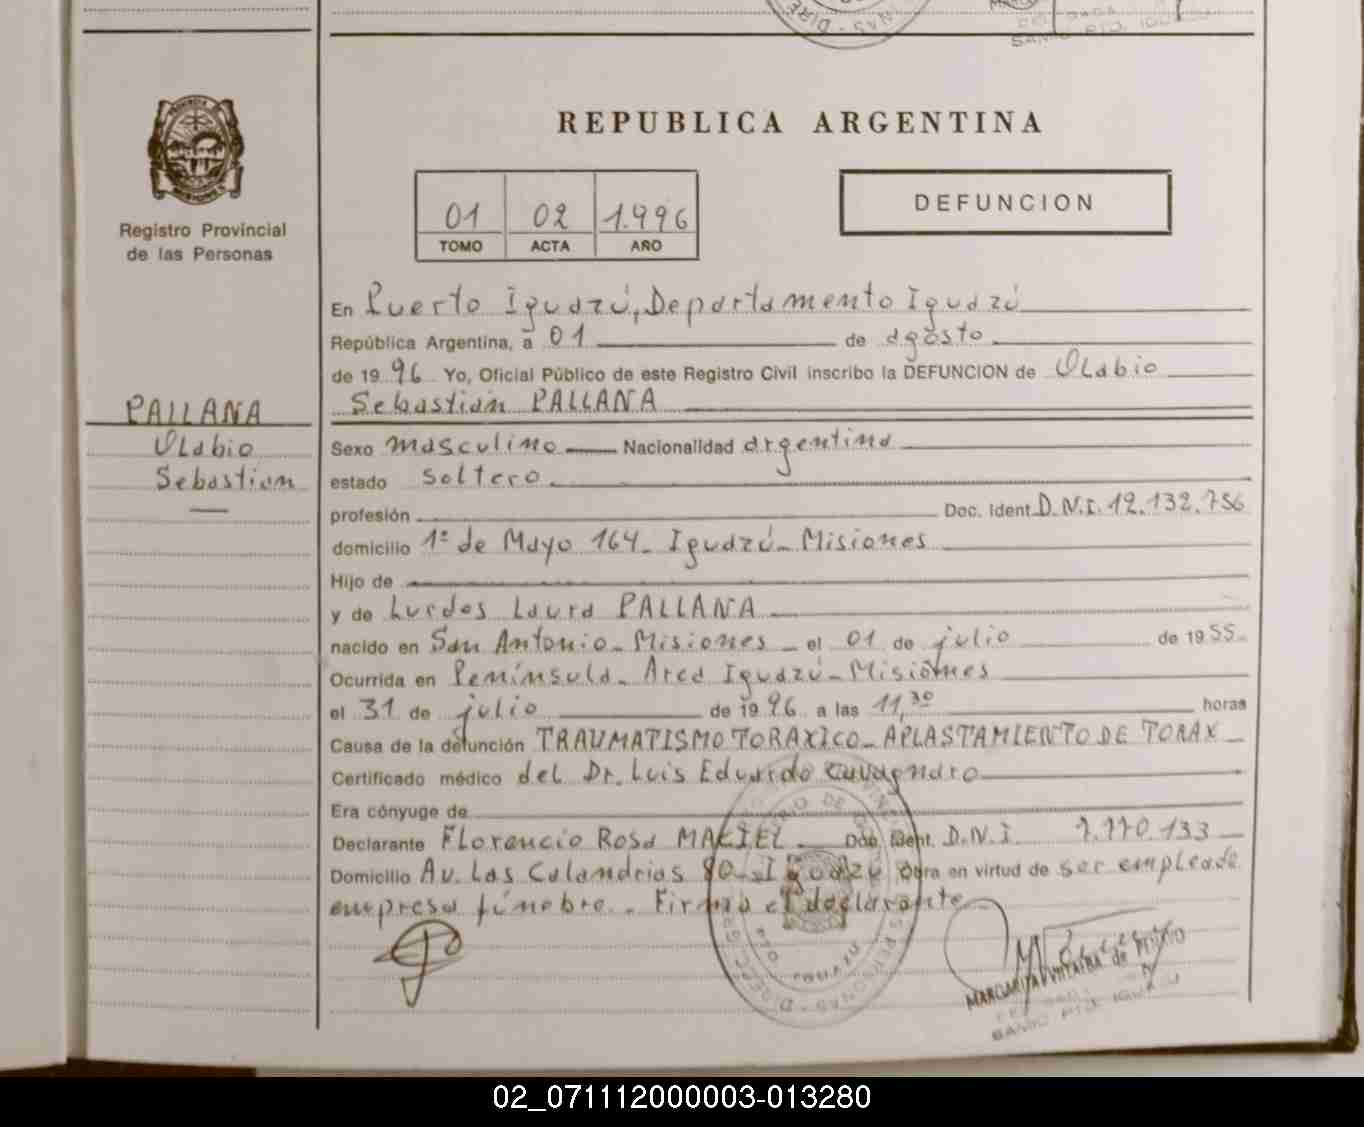 REPUBLICA ARGENTINA
Registro Provincial
de las Personas
01 02 1.996
TOMO ACTA AÑO
DEFUNCION
PALLANA
Olabio
Sebastian
En Puerto Iguazú, Departamento Iguazú
República Argentina, a 01 de agosto
de 1996 Yo, Oficial Público de este Registro Civil inscribo la DEFUNCION de Olabio
Sebastián PALLANA
Sexo masculino Nacionalidad argentina
estado soltero
profesión Doc. Ident. D.N.I. 12.132.756
domicilio 1º de Mayo 164 - Iguazú - Misiones
Hijo de
y de Lurdes Laura PALLANA
nacido en San Antonio - Misiones - el 01 de julio de 1955
Ocurrida en Península - Area Iguazú - Misiones
el 31 de julio de 1996 a las 11,30 horas
Causa de la defunción TRAUMATISMO TORAXICO - APLASTAMIENTO DE TORAX
Certificado médico del Dr. Luis Eduardo Cavagnaro
Era cónyuge de
Declarante Florencio Rosa MACIEL Doc. Ident. D.N.I.
Domicilio Av. Las Calandrias 80 - Iguazú Obra en virtud de ser empleado
empresa fúnebre. - Firma el declarante
MARGARITA de
PTO. IGUAZU
02_071112000003-013280